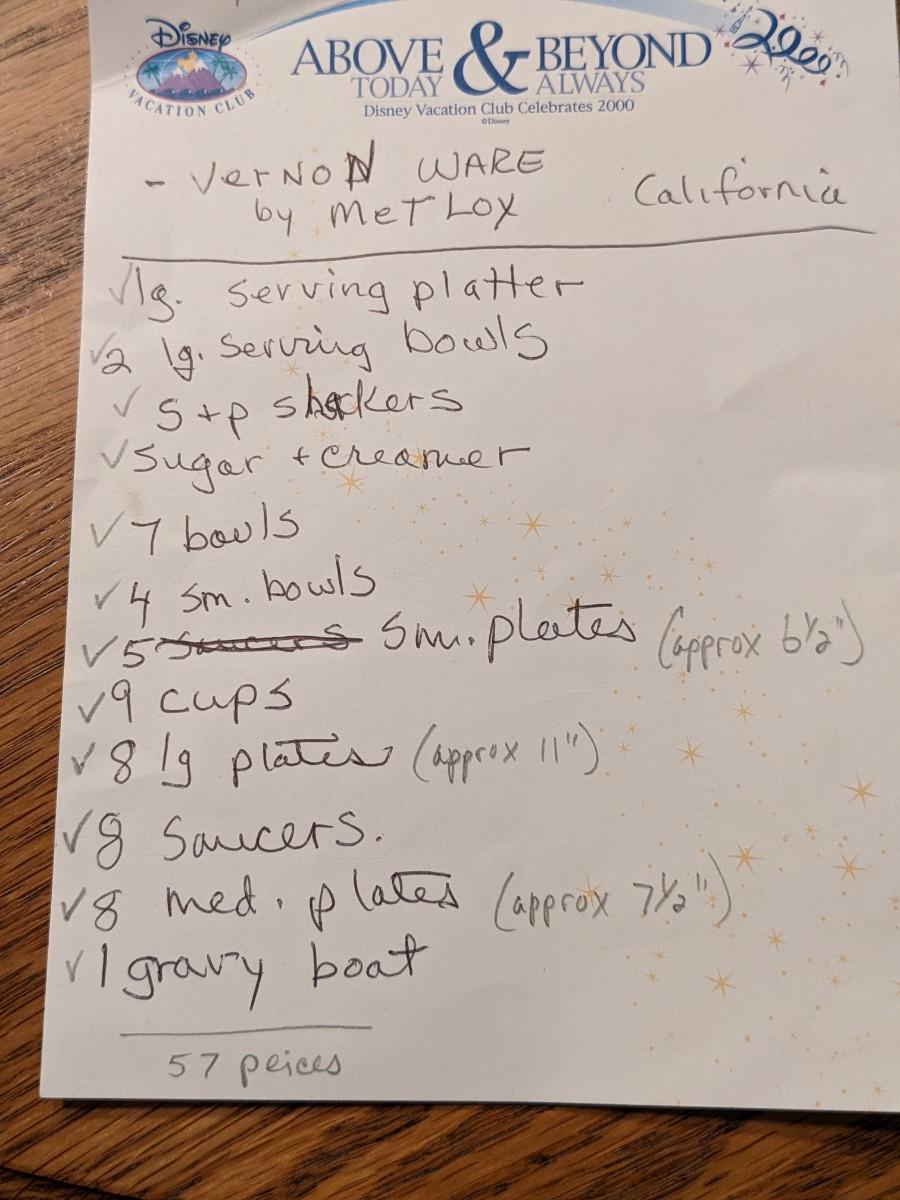 DISNEY
VACATION CLUB
ABOVE & BEYOND
TODAY ALWAYS
2000
Disney Vacation Club Celebrates 2000
©Disney
- VerNON WARE
by MeTLOX California
✓lg. serving platter
✓2 lg. serving bowls
✓ S+p shakers
✓Sugar + creamer
✓7 bowls
✓4 sm. bowls
✓5 ~~saucers~~ sm. plates (approx 6½")
✓9 cups
✓8 lg plates (approx 11")
✓8 saucers.
✓8 med. plates (approx 7½")
✓1 gravy boat
57 peices